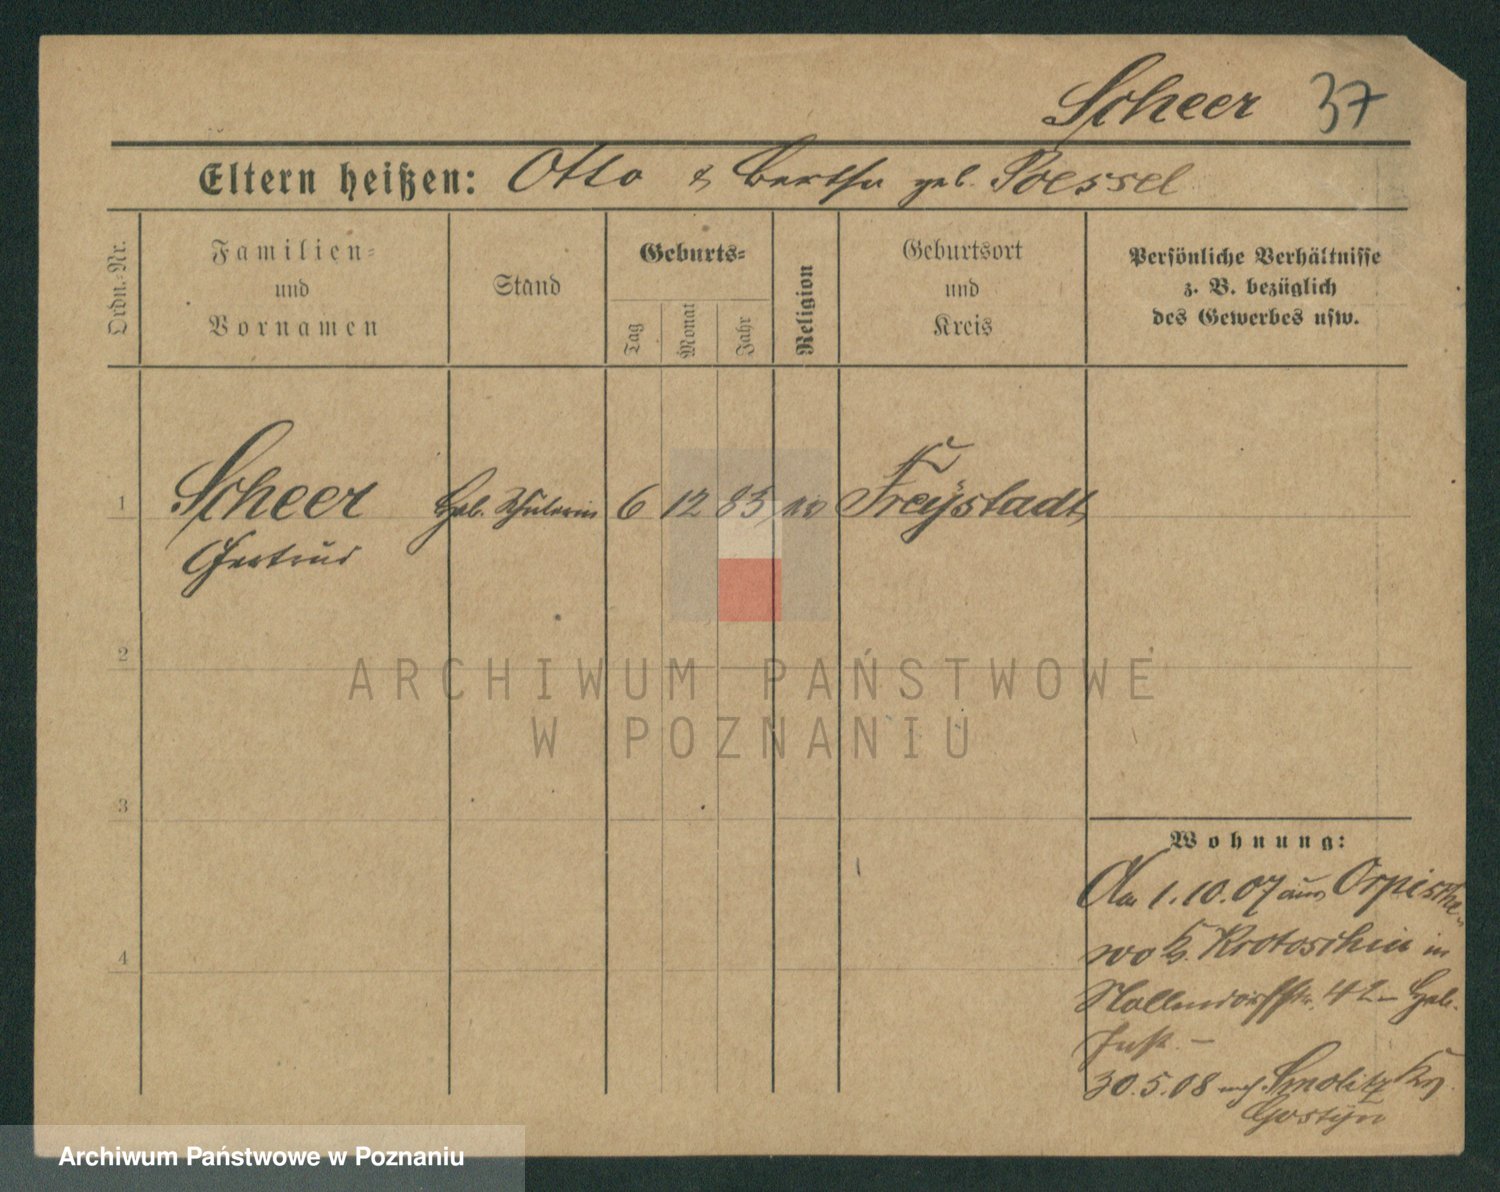 Scheer 37
Eltern heißen: Otto & Bertha geb. Poessel
Ordn.-Nr.
Familien-
und
Vornamen
Stand
Geburts-
Tag
Monat
Jahr
Religion
Geburtsort
und
Kreis
Persönliche Verhältnisse
z. B. bezüglich
des Gewerbes usw.
1 Scheer Heb. Schülerin 6 12 85 Freystadt
Gertrud
2
3
4
ARCHIWUM PAŃSTWOWE
W POZNANIU
Wohnung:
Am 1.10.07 aus Orpische-
wo Krotoschin in
Nollendorffstr. 42 Heb.
Inst. —
30.5.08 nach Smolitz Krs
Gostyn
Archiwum Państwowe w Poznaniu